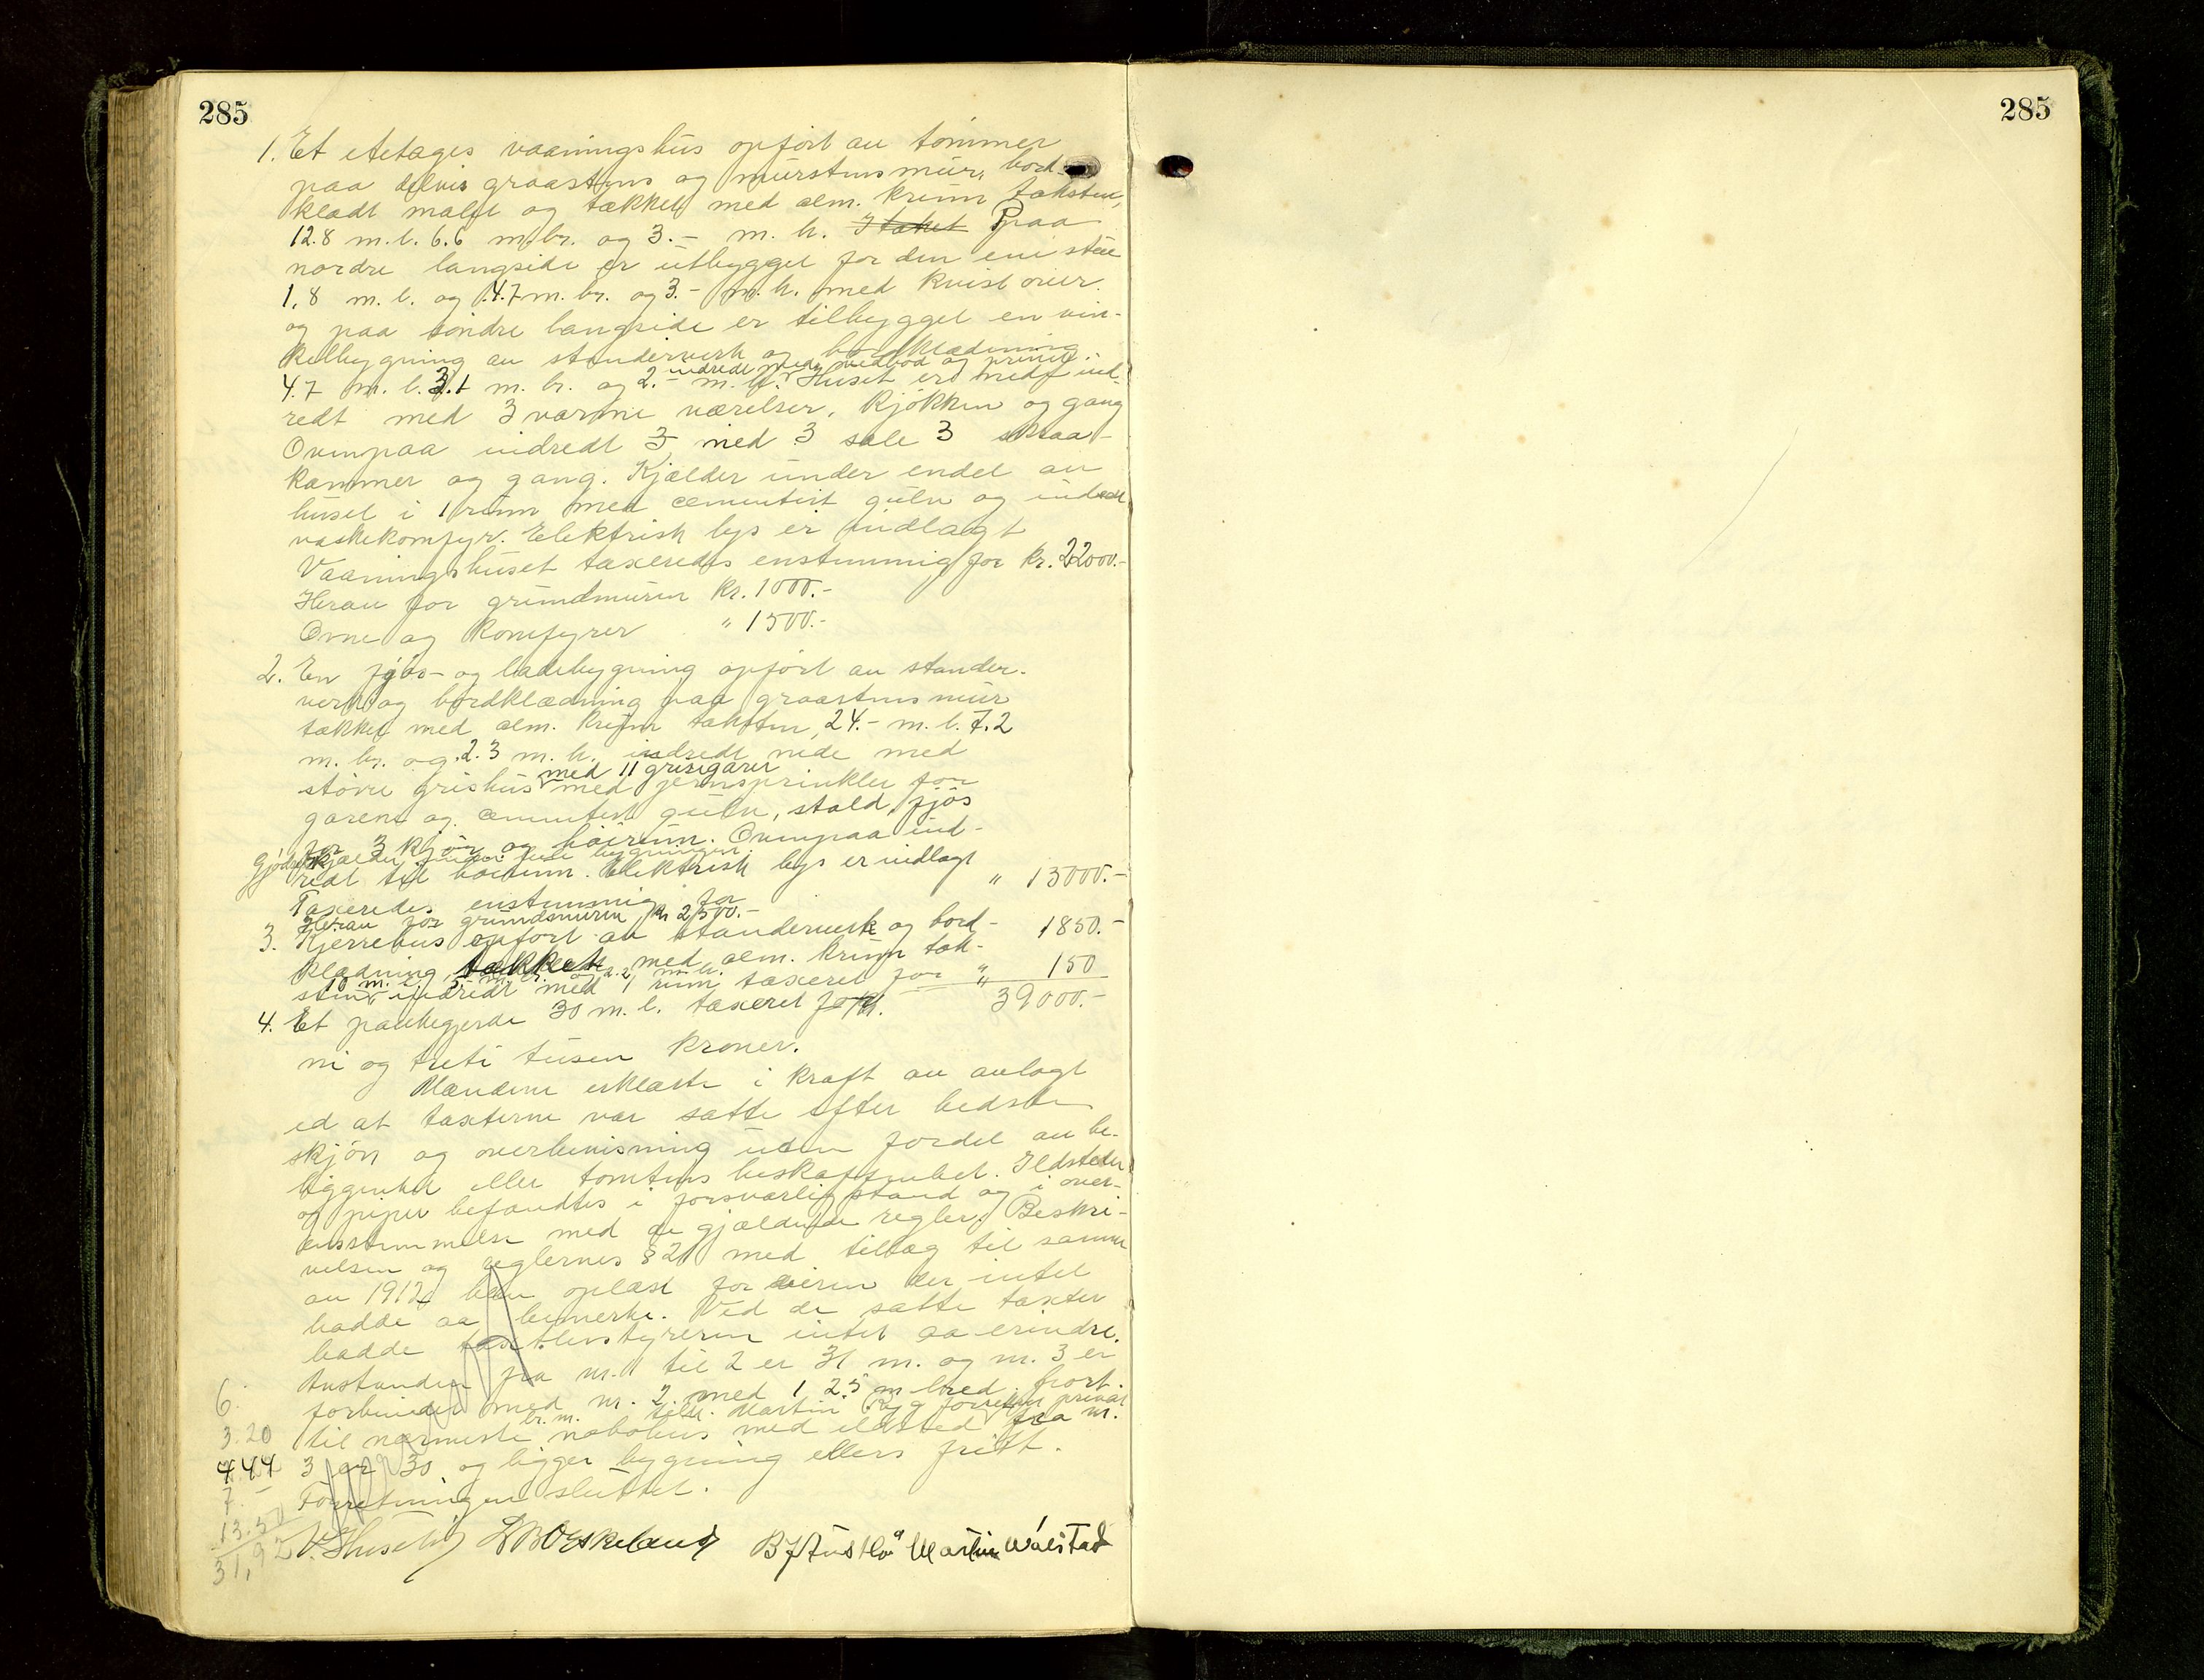 285
1. Et etetages vaaningshus opført au tømmer
paa delvis graastens og murstens mur, bord-
klædt malt og tækket med alm. krum taksten,
12.8 m.l. 6.6 m.br. og 3.- m.h. I taket Paa
nordre langside er utbygget for den ene stue
1,8 m.l. og 4.7 m.br. og 3.- m.h. med kvist over.
og paa søndre langside er tilbygget en vin-
kelbygning au standerverk og bordklædning.
indredet med vedbod og privet.
4.7 m.l. 3.1 m.br. og 2.- m.h. Huset er nede ind-
redt med 3 varme værelser, kjøkken og gang
Ovenpaa indredt 3 med 3 sale 3 skraa-
kammer og gang. Kjælder under endel au
huset i 1 rum med cementert gulv og indsat
vaskekomfyr. Elektrisk lys er indlagt
Vaaningshuset taxeredes enstemmig for kr. 22000.-
Herau for grundmuren kr. 1000.-
Ovne og komfyrer " 1500.-
2. En fjøs- og ladebygning opført au stander-
verk og bordklædning paa graastens mur
tækket med alm. krum taksten, 24.- m.l. 7.2
m.br. og 2.3 m.h. indredt nede med
med 11 grisegarer
større grishus med jernsprinkler for
garene og cementert gulv, stald, fjøs
for 3 kjør og høirum. Ovenpaa ind-
Gjødselkjælder under hele bygningen.
redt til høirum. Elektrisk lys er indlagt
Taxeredes enstemmig for " 15000.-
Herau for grundmuren kr 2500.-
3. Kjerrehus opført au standerverk og bord-
klædning tækket med alm. krum tak- 1850.-
10 m.l. 5.- m.br. og 2.2 m.h.
sten indredt med 1 rum taxeret for "
4. Et pankegjerde 30 m.l. taxeret for kr. " 150
39000.-
ni og treti tusen kroner.
Mændene erklærte i kraft au avlagt
ed at taxterne var satte efter bedste
skjøn og overbevisning uden fordel au be-
liggenhet eller tomtens beskaffenhet. Ildsteder
og piper befandtes i forsvarlig stand og i over-
ensstemmelse med de gjældende regler. Beskri-
velsen og reglernes § 21 med tillæg til samme
au 1912 blev oplæst for eieren der intet
hadde aa bemerke. Ved de satte taxter
hadde taxtbestyreren intet aa erindre.
Avstanden fra nr. 1 til 2 er 31 m. og nr. 3 er
forbundet med nr. 2 med 1,25 m bred port.
br. m. tilh. Martin Ryg forretn privat
til nærmeste nabohus med ildsted fra nr.
3 er 30 og ligger bygning ellers fritt.
Forretningen sluttet.
V. Huseby B J Austbø Martin Wølstad
6.
3.20
4.44
7.-
13.50
31,92
285